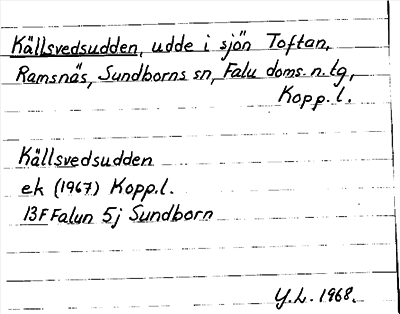 Källsvedsudden, udde i sjön Toftan,
Ramsnäs, Sundborns sn, Falu doms. n. tg,
Kopp. l.
Källsvedsudden
ek (1967) Kopp. l.
13F Falun 5j Sundborn
Y.L. 1968.